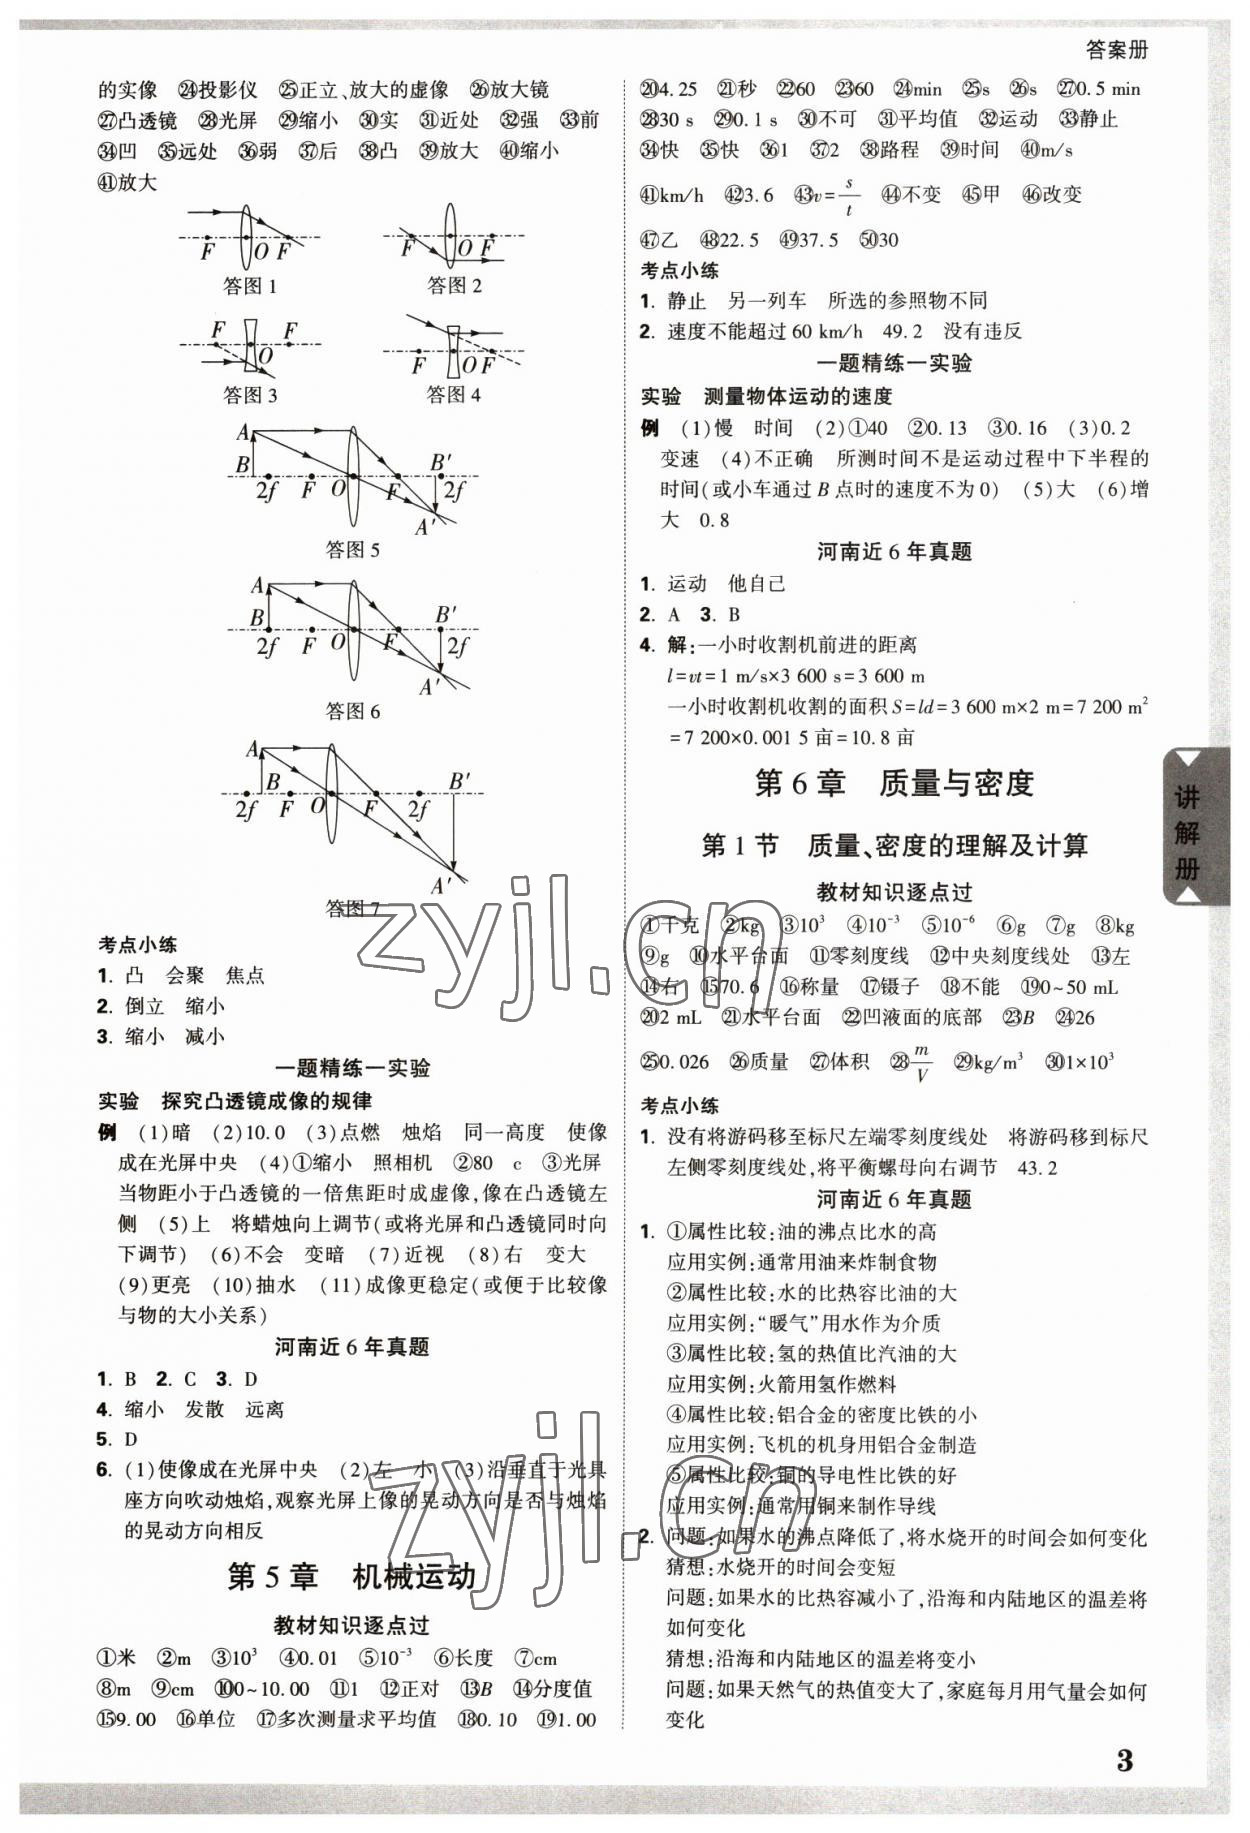 答案册
的实像　㉔投影仪　㉕正立、放大的虚像　㉖放大镜
㉗凸透镜　㉘光屏　㉙缩小　㉚实　㉛近处　㉜强　㉝前
㉞凹　㉟远处　㊱弱　㊲后　㊳凸　㊴放大　㊵缩小
㊶放大
F O F
答图 1
F O F
答图 2
F F O
答图 3
F O F
答图 4
A B 2f F O F B′ 2f A′
答图 5
A B 2f F O F B′ 2f A′
答图 6
A B 2f F O F 2f B′ A′
答图 7
考点小练
1. 凸　会聚　焦点
2. 倒立　缩小
3. 缩小　减小
一题精练一实验
实验　探究凸透镜成像的规律
例　(1)暗　(2)10.0　(3)点燃　烛焰　同一高度　使像
成在光屏中央　(4)①缩小　照相机　②80　c　③光屏
当物距小于凸透镜的一倍焦距时成虚像,像在凸透镜左
侧　(5)上　将蜡烛向上调节(或将光屏和凸透镜同时向
下调节)　(6)不会　变暗　(7)近视　(8)右　变大
(9)更亮　(10)抽水　(11)成像更稳定(或便于比较像
与物的大小关系)
河南近 6 年真题
1. B　2. C　3. D
4. 缩小　发散　远离
5. D
6. (1)使像成在光屏中央　(2)左　小　(3)沿垂直于光具
座方向吹动烛焰,观察光屏上像的晃动方向是否与烛焰
的晃动方向相反
第 5 章　机械运动
教材知识逐点过
①米　②m　③10³　④0.01　⑤10⁻³　⑥长度　⑦cm
⑧m　⑨cm　⑩0~10.00　⑪1　⑫正对　⑬B　⑭分度值
⑮9.00　⑯单位　⑰多次测量求平均值　⑱0.10　⑲1.00
⑳4.25　㉑秒　㉒60　㉓60　㉔min　㉕s　㉖s　㉗0.5 min
㉘30 s　㉙0.1 s　㉚不可　㉛平均值　㉜运动　㉝静止
㉞快　㉟快　㊱1　㊲2　㊳路程　㊴时间　㊵m/s
㊶km/h　㊷3.6　㊸v=s/t　㊹不变　㊺甲　㊻改变
㊼乙　㊽22.5　㊾37.5　㊿30
考点小练
1. 静止　另一列车　所选的参照物不同
2. 速度不能超过 60 km/h　49.2　没有违反
一题精练一实验
实验　测量物体运动的速度
例　(1)慢　时间　(2)①40　②0.13　③0.16　(3)0.2
变速　(4)不正确　所测时间不是运动过程中下半程的
时间(或小车通过 B 点时的速度不为 0)　(5)大　(6)增
大　0.8
河南近 6 年真题
1. 运动　他自己
2. A　3. B
4. 解:一小时收割机前进的距离
l=vt=1 m/s×3 600 s=3 600 m
一小时收割机收割的面积 S=ld=3 600 m×2 m=7 200 m²
=7 200×0.001 5 亩=10.8 亩
第 6 章　质量与密度
第 1 节　质量、密度的理解及计算
教材知识逐点过
①千克　②kg　③10³　④10⁻³　⑤10⁻⁶　⑥g　⑦g　⑧kg
⑨g　⑩水平台面　⑪零刻度线　⑫中央刻度线处　⑬左
⑭右　⑮70.6　⑯称量　⑰镊子　⑱不能　⑲0~50 mL
⑳2 mL　㉑水平台面　㉒凹液面的底部　㉓B　㉔26
㉕0.026　㉖质量　㉗体积　㉘m/V　㉙kg/m³　㉚1×10³
考点小练
1. 没有将游码移至标尺左端零刻度线处　将游码移到标尺
左侧零刻度线处,将平衡螺母向右调节　43.2
河南近 6 年真题
1. ①属性比较:油的沸点比水的高
应用实例:通常用油来炸制食物
②属性比较:水的比热容比油的大
应用实例:“暖气”用水作为介质
③属性比较:氢的热值比汽油的大
应用实例:火箭用氢作燃料
④属性比较:铝合金的密度比铁的小
应用实例:飞机的机身用铝合金制造
⑤属性比较:铜的导电性比铁的好
应用实例:通常用铜来制作导线
2. 问题:如果水的沸点降低了,将水烧开的时间会如何变化
猜想:水烧开的时间会变短
问题:如果水的比热容减小了,沿海和内陆地区的温差将
如何变化
猜想:沿海和内陆地区的温差将变小
问题:如果天然气的热值变大了,家庭每月用气量会如何
变化
讲解册
3
zyjl.cn
zyjl.cn